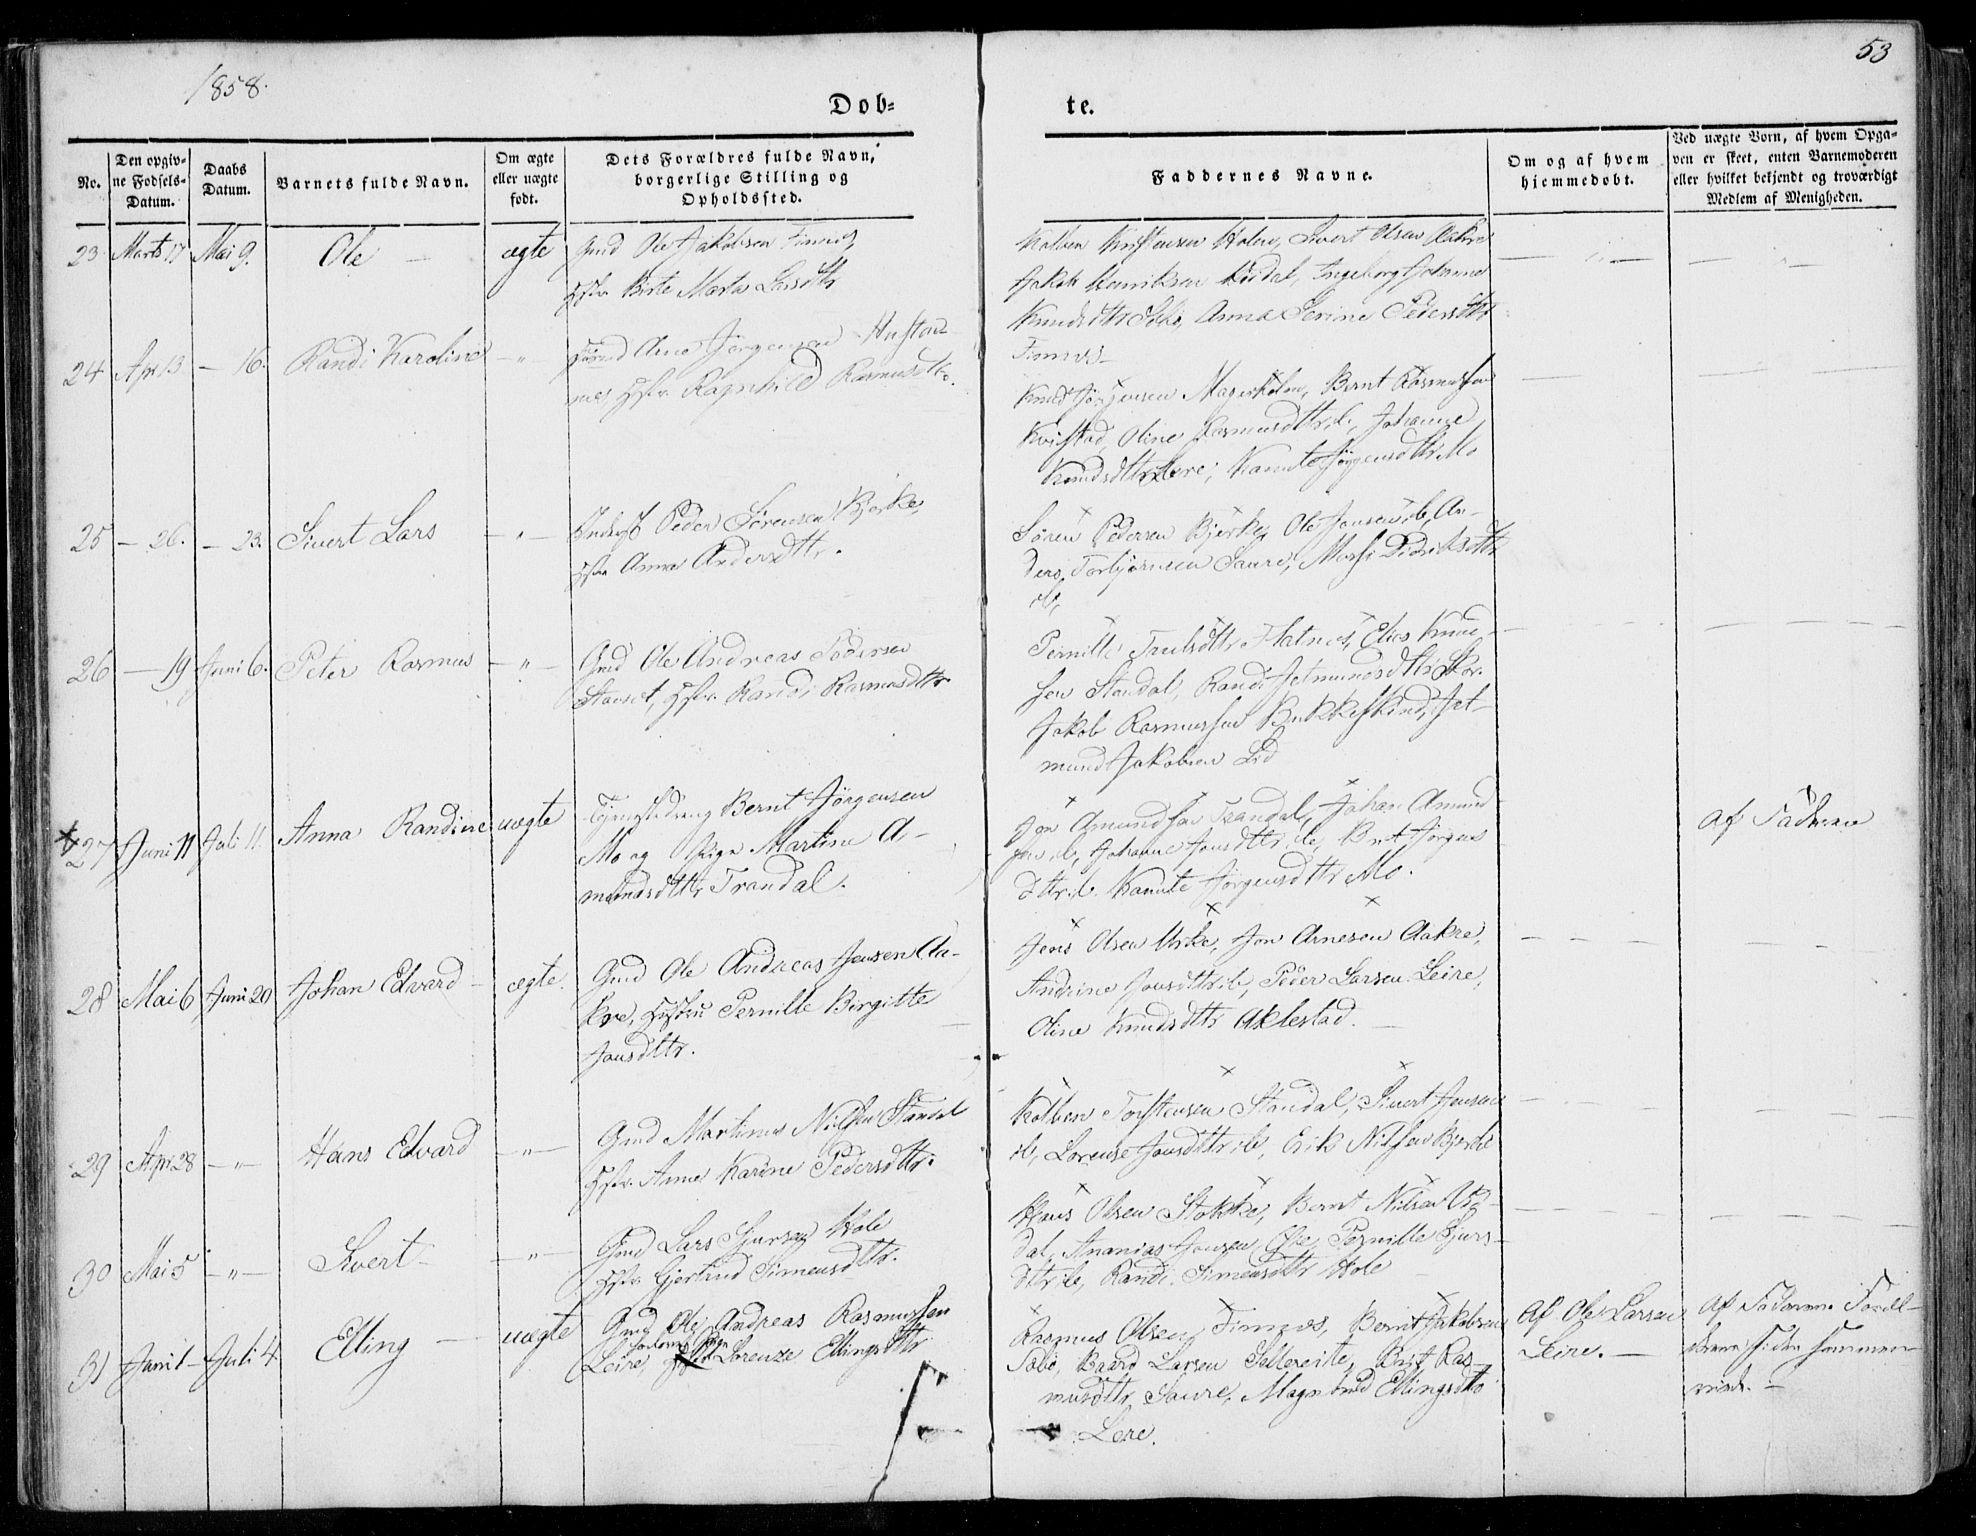 1858.
53
Dobte.
No.
Den opgivne Fodsels-Datum.
Daabs Datum.
Barnets fulde Navn.
Om ægte eller uægte fodt.
Dets Forældres fulde Navn, borgerlige Stilling og Opholdssted.
Faddernes Navne.
Om og af hvem hjemmedobt.
Ved uægte Born, af hvem Opgaven er skeet, enten Barnemoderen eller hvilket bekjendt og troværdigt Medlem af Menigheden.
23 Marts 17 Mai 9. Ole — ægte
Gmd Ole Jakobsen Finnes,
Hstr Birte Marta Larsdttr
Kolben Kristensen Holen, Sivert Olsen Aakre
Jakob Henriksen Ingeborg Johanne
Knudsdttr Anna Serine Pedersdttr
Finnes
24 Apr 13 — 16. Randi Karoline — " —
Arne Jørgensen Hustad-
nes Hstr. Ragnhild Rasmusdttr.
Knud Jörgensen Magerholm, Bernt Rasmussen
Kvistad, Oline Rasmusdttr ib, Johanne
Knudsdttr Leire, Kanute Jörgensdttr Mo
25 — 26. — 23. Sivert Lars — " —
Inderst Peder Sörensen Bjerke,
Hstr Anna Andersdttr.
Sören Pedersen Bjerke, Ole Jensen ib, An-
ders Torbjörnsen Saure, Didriksdttr
ib,
26 — 19 Juni 6. Peter Rasmus — " —
Gmd Ole Andreas Pedersen
Stavset, Hstr. Randi Rasmusdttr
Pernille Truelsdttr Flatnes, Elias Knud-
sen Standal, Randi Jetmundsdttr Skor.
Jakob Rasmussen Bukkeskind, Jet-
mund Jakobsen Lid
27 Juni 11 Juli 11. Anna Randine uægte
Tjenestedreng Bernt Jörgensen
Mo og Pige Martine A-
mundsdttr Trandal.
Jon Amundsen Trandal, Johan Amund
sen ib, Johanne Jonsdttr ib, Brit Jörgens
dttr ib. Kanute Jörgensdttr Mo.
Af Faderen
28 Mai 6 Juni 20 Johan Edvard — ægte.
Gmd Ole Andreas Jensen Aa-
kre, Hustru Pernille Birgitte
Jonsdttr.
Jens Olsen Urke, Jon Arnesen Aakre,
Andrine Jonsdttr ib, Peder Larsen Leire,
Oline Knudsdttr Aklestad.
29 Apr. 28 — " — Hans Edvard — " —
Gmd Martinus Nilsen Standal
Hstr. Anne Karine Pedersdttr.
Kolben Torstensen Standal, Sivert Jensen
ib, Lorense Jonsdttr ib, Erik Nilsen Bjerke
30 Mai 5 — " — Sivert — " —
Gmd Lars Sjursen Hole
Hstr Gjertrud Simensdttr.
Klaus Olsen Stokke, Bernt Nilsen Ur-
dal, Ananias Jensen Pernille Sjurs-
dttr ib, Randi Simensdttr Hole
31 Juni 1 — Juli 4 Elling — uægte
Gmd Ole Andreas Rasmussen
Leire, Lorenze Ellingsdttr
Rasmus Olsen Finnes, Bernt Jakobsen
Sæbö, Baard Larsen Sætereite, Brit Ras-
musdttr Saure, Magnhild Ellingsdttr
Leire.
Af Ole Larsen
Leire. —
Af Faderen. Foræl-
drene siden sammen-
viede. —